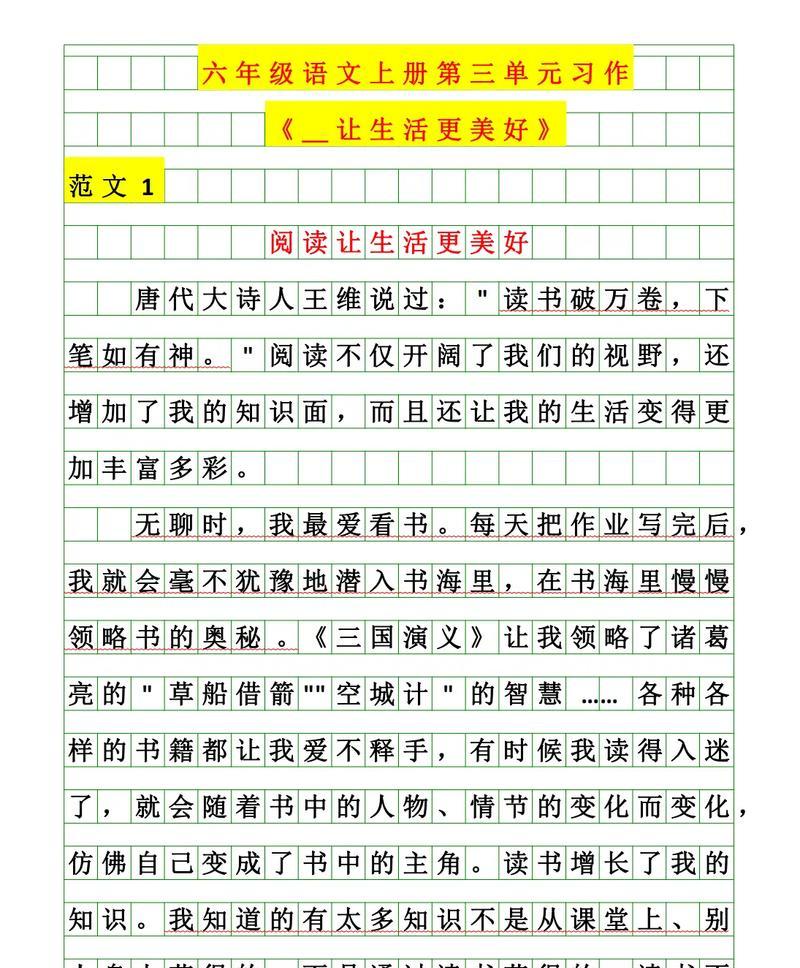 六年级语文上册第三单元习作
《__让生活更美好》
范文1
阅读让生活更美好
唐代大诗人王维说过："读书破万卷，下
笔如有神。"阅读不仅开阔了我们的视野，还
增加了我的知识面，而且还让我的生活变得更
加丰富多彩。
无聊时，我最爱看书。每天把作业写完后，
我就会毫不犹豫地潜入书海里，在书海里慢慢
领略书的奥秘。《三国演义》让我领略了诸葛
亮的"草船借箭""空城计"的智慧……各种各
样的书籍都让我爱不释手，有时候我读得入迷
了，就会随着书中的人物、情节的变化而变化，
仿佛自己变成了书中的主角。读书增长了我的
知识。我知道的有太多知识不是从课堂上、别